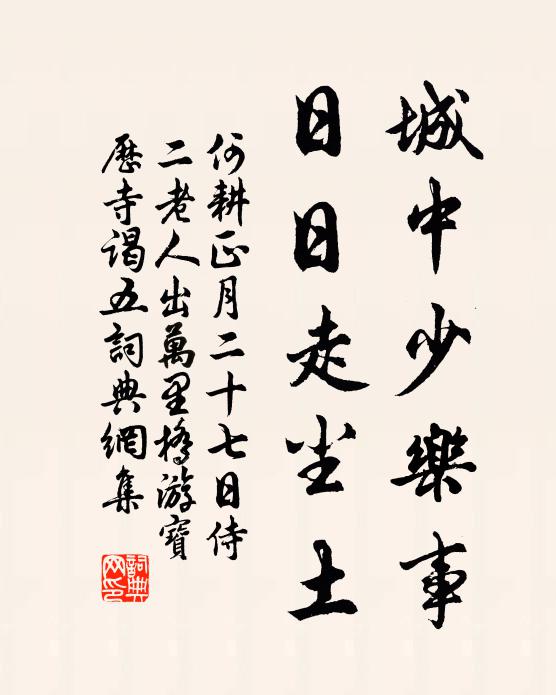 城中少樂事
日日走尘土
何耕正月二十七日侍
二老人出萬里橋游寶
歷寺謁五詞典網集
詞典网印